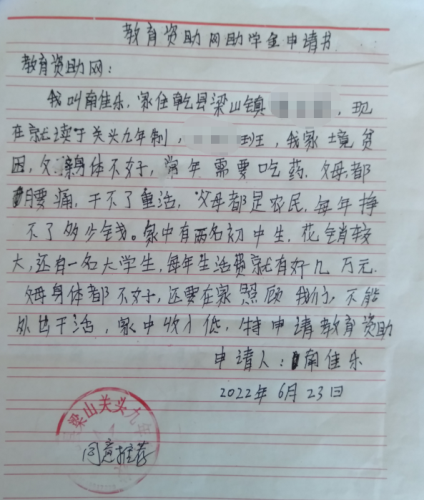 教育资助网助学金申请书
教育资助网：
我叫南佳乐，家住乾县梁山镇，现
在就读于关头九年制，班，我家境贫
困，父亲身体不好，常年需要吃药，父母都
腰痛，干不了重活，父母都是农民，每年挣
不了多少钱。家中有两名初中生，花销较
大，还有一名大学生，每年生活费就有好几万元
父母身体都不好，还要在家照顾我们，不能
外出干活，家中收入低，特申请教育资助
申请人：南佳乐
2022年6月23日
梁山关头九年
同意推荐